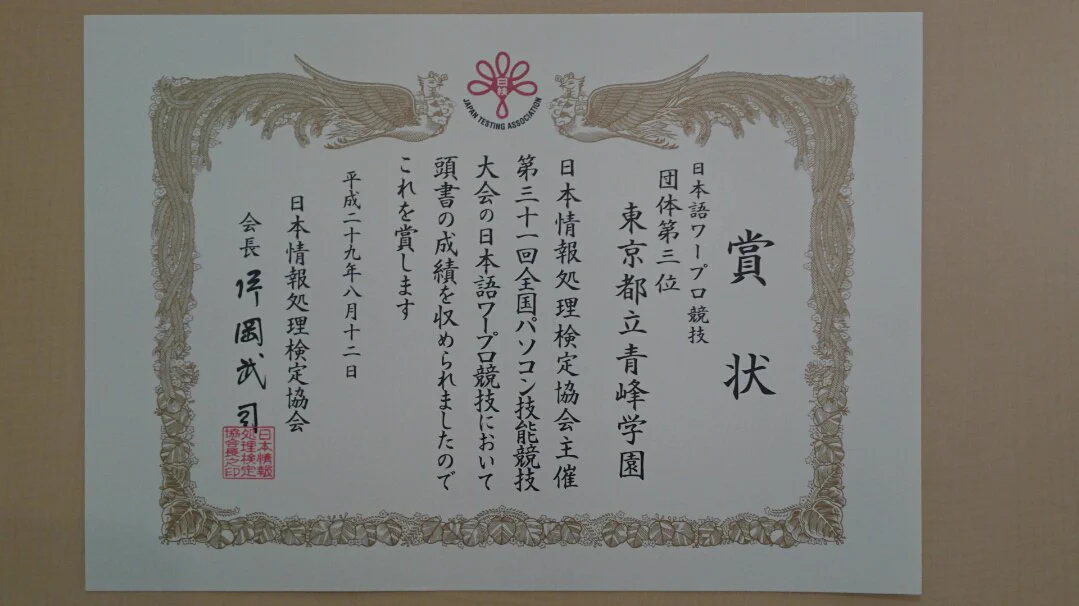 日検
JAPAN TESTING ASSOCIATION
賞状
日本語ワープロ競技
団体第三位
東京都立青峰学園
日本情報処理検定協会主催
第三十一回全国パソコン技能競技
大会の日本語ワープロ競技において
頭書の成績を収められましたので
これを賞します
平成二十九年八月十二日
日本情報処理検定協会
会長 岡武司
日本情報
処理検定
協会長之印